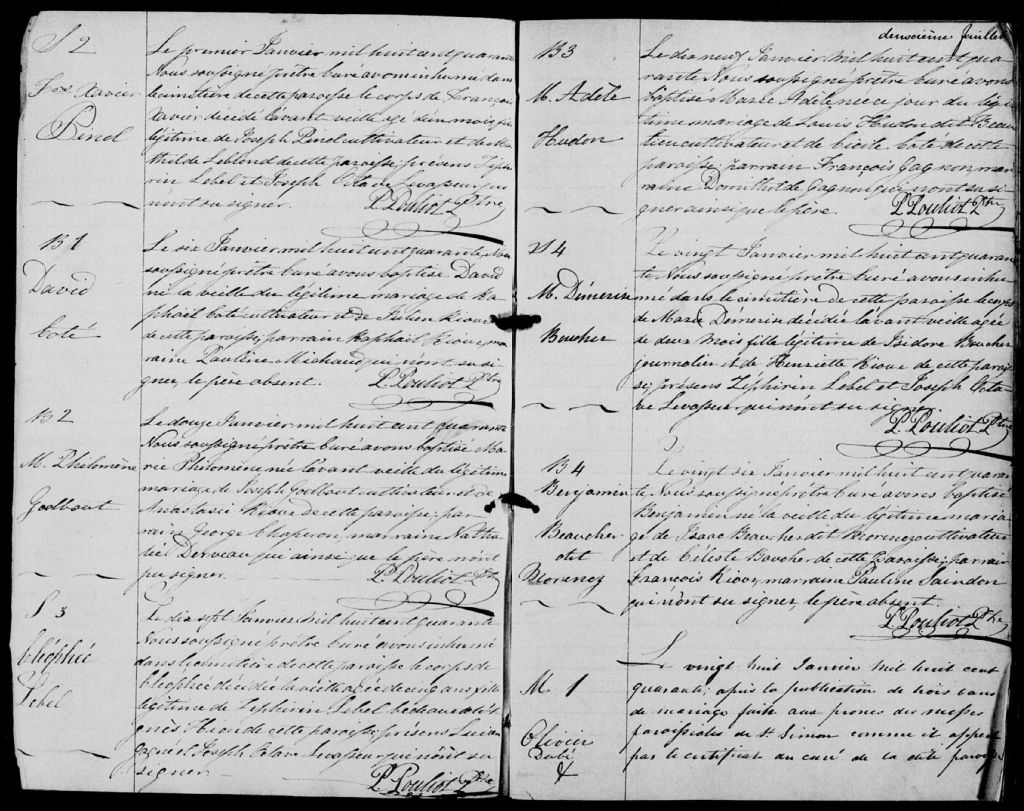 S 2
Fçs Xavier
Pinel
Le premier Janvier mil huit cent quarante
Nous soussigné prêtre curé avons inhumé dans
le cimetière de cette paroisse le corps de François
Xavier décédé l'avant veille agé d'un mois fils
légitime de Joseph Pinel cultivateur et de Ma
thilde Leblond de cette paroisse; présens Zéphi
rin Lebel et Joseph Octave Levasseur qui
n'ont su signer. P. Pouliot Ptre
B 1
David
Coté
Le six Janvier mil huit cent quarante Nous
soussigné prêtre curé avons baptisé David
né la veille du légitime mariage de Ra
phaël Coté cultivateur et de Julien Rioux
de cette paroisse; parrain Raphaël Rioux, mar
raine Pauline Michaud qui n'ont su si
gner, le père absent. P. Pouliot Ptre
B 2
M. Philomène
Godbout
Le douze Janvier mil huit cent quarante
Nous soussigné prêtre curé avons baptisé Ma
rie Philomène née l'avant veille du légitime
mariage de Joseph Godbout cultivateur et de
Anastasie Rioux de cette paroisse; par
rain George Chaperon, marraine Natha
lie Derveau qui ainsi que le père n'ont
pu signer. P. Pouliot Ptre
S 3
Cléophée
Lebel
Le dix sept Janvier mil huit cent quarante
Nous soussigné prêtre curé avons inhumé
dans le cimetière de cette paroisse le corps de
Cléophée décédée la veille agée de cinq ans fille
légitime de Zéphirin Lebel bédeau et d'A
gnès Rioux de cette paroisse; présens
Gagné et Joseph Octave Levasseur qui n'ont su
signer. P. Pouliot Ptre
deuxième feuillet
B 3
M. Adèle
Hudon
Le dix neuf Janvier mil huit cent qua
rante Nous soussigné prêtre curé avons
baptisé Marie Adèle née ce jour du légi
time mariage de Louis Hudon dit Beau
lieu cultivateur et de Coté de cette
paroisse; parrain François Gagnon, mar
raine de Gagnon qui n'ont su si
gner ainsi que le père. P. Pouliot Ptre
S 4
M. Démerise
Boucher
Le vingt Janvier mil huit cent quaran
te Nous soussigné prêtre curé avons inhu
mé dans le cimetière de cette paroisse le corps
de Marie Démerise décédée l'avant veille agée
de deux mois fille légitime de Isidore Boucher
journalier et de Henriette Rioux de cette parois
se; présens Zéphirin Lebel et Joseph Octa
ve Levasseur qui n'ont su signer.
P. Pouliot Ptre
B 4
Benjamin
Beaucher
dit
Morency
Le vingt six Janvier mil huit cent quaran
te Nous soussigné prêtre curé avons baptisé
Benjamin né la veille du légitime maria
ge de Isaac Beaucher dit Morency cultivateur
et de Céleste Boucher de cette Paroisse; parrain
François Rioux, marraine Pauline Saindon
qui n'ont su signer, le père absent.
P. Pouliot Ptre
M 1
Olivier
Dubé
&
Le vingt huit Janvier mil huit cent
quarante; après la publication de trois bans
de mariage faite aux prones des messes
paroissiales de St. Simon comme il appert
par le certificat du curé de la dite paroisse